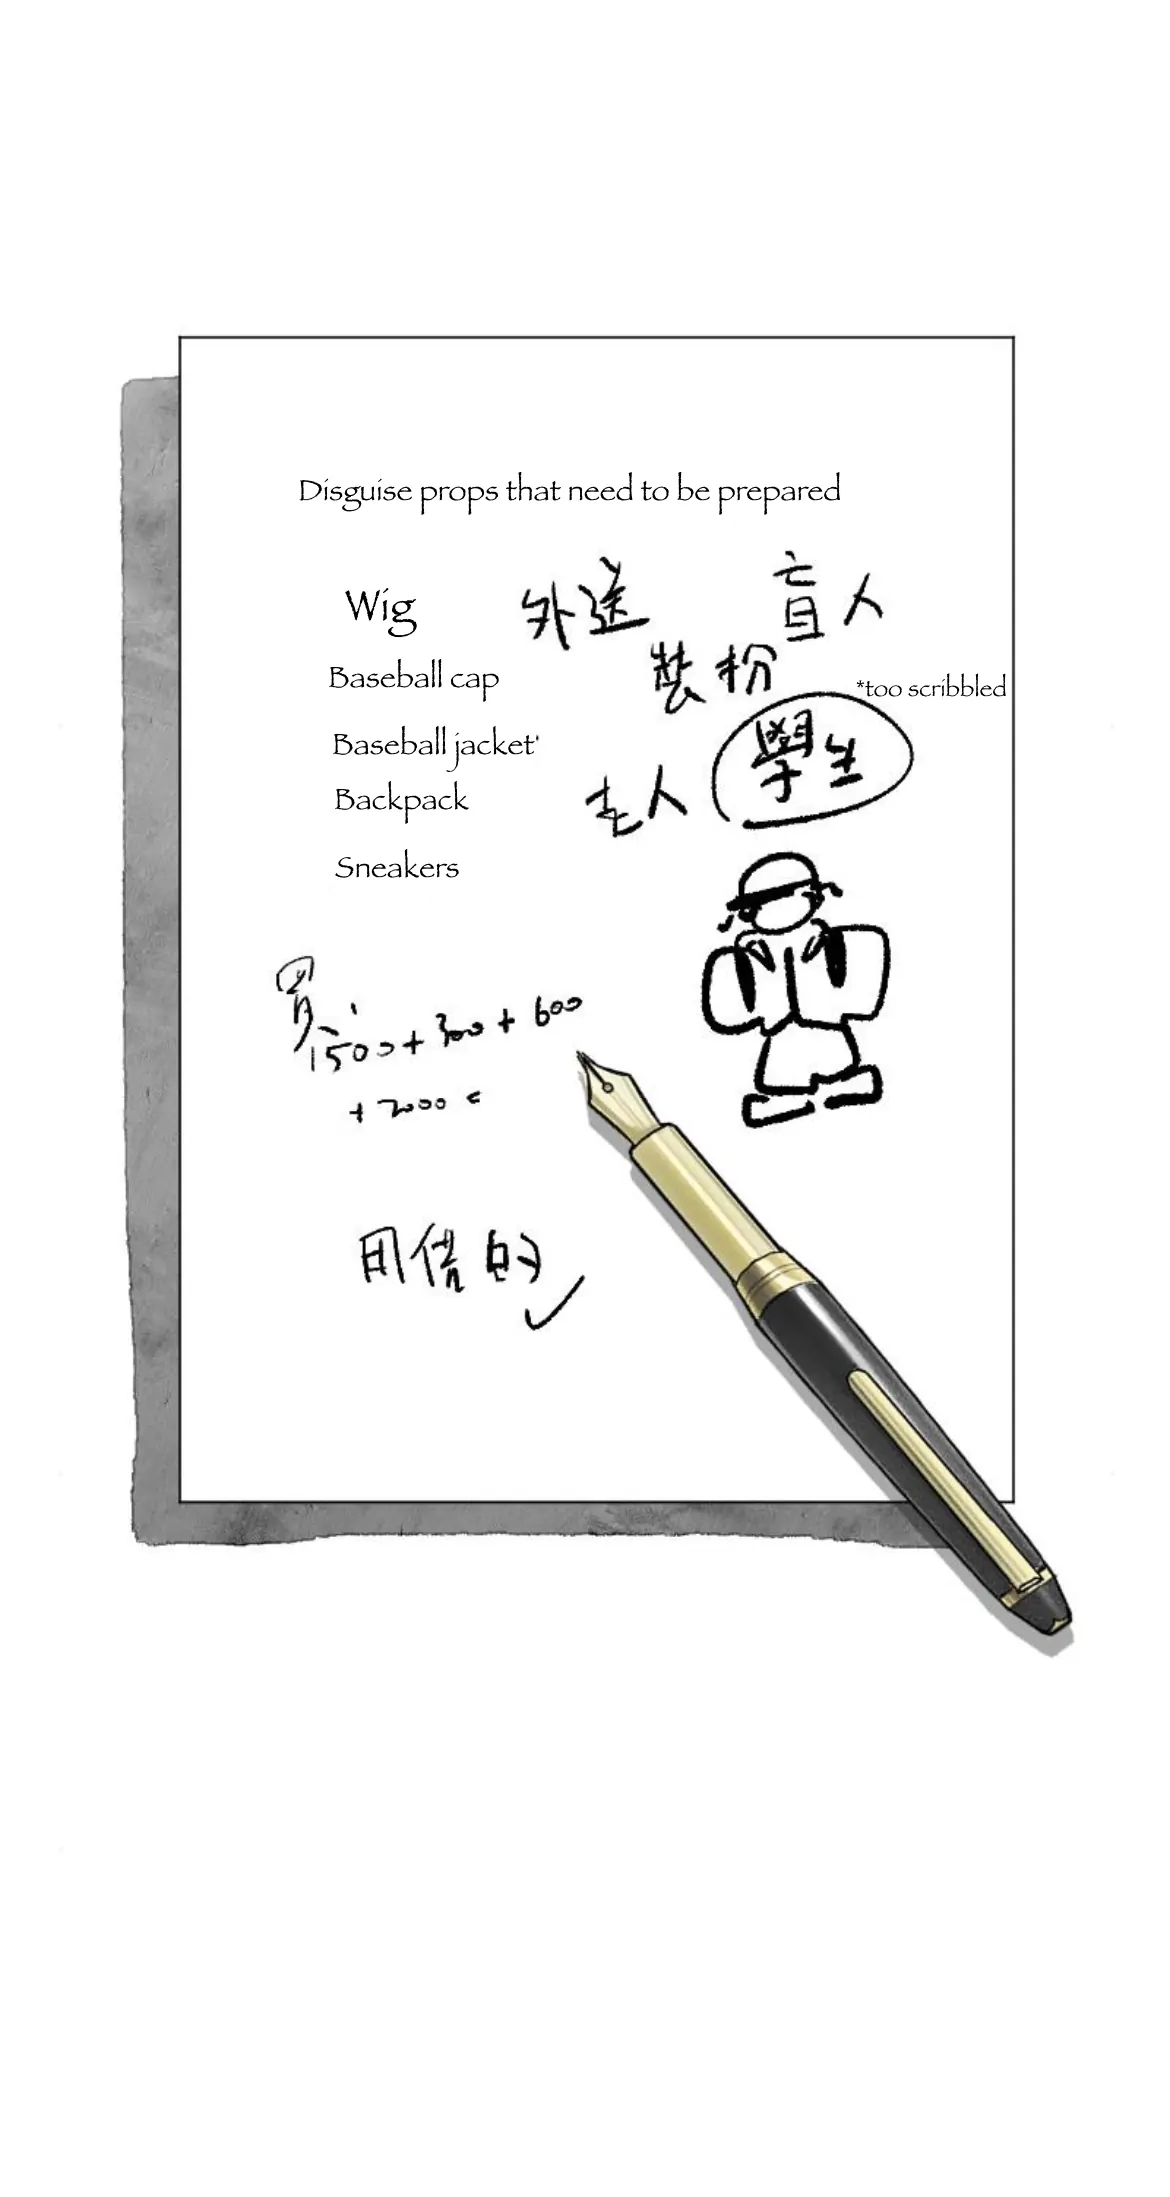 Disguise props that need to be prepared
Wig
外送
盲人
Baseball cap
裝扮
*too scribbled
Baseball jacket'
學生
Backpack
老人
Sneakers
買
1500+300+600
+2000 =
用借的